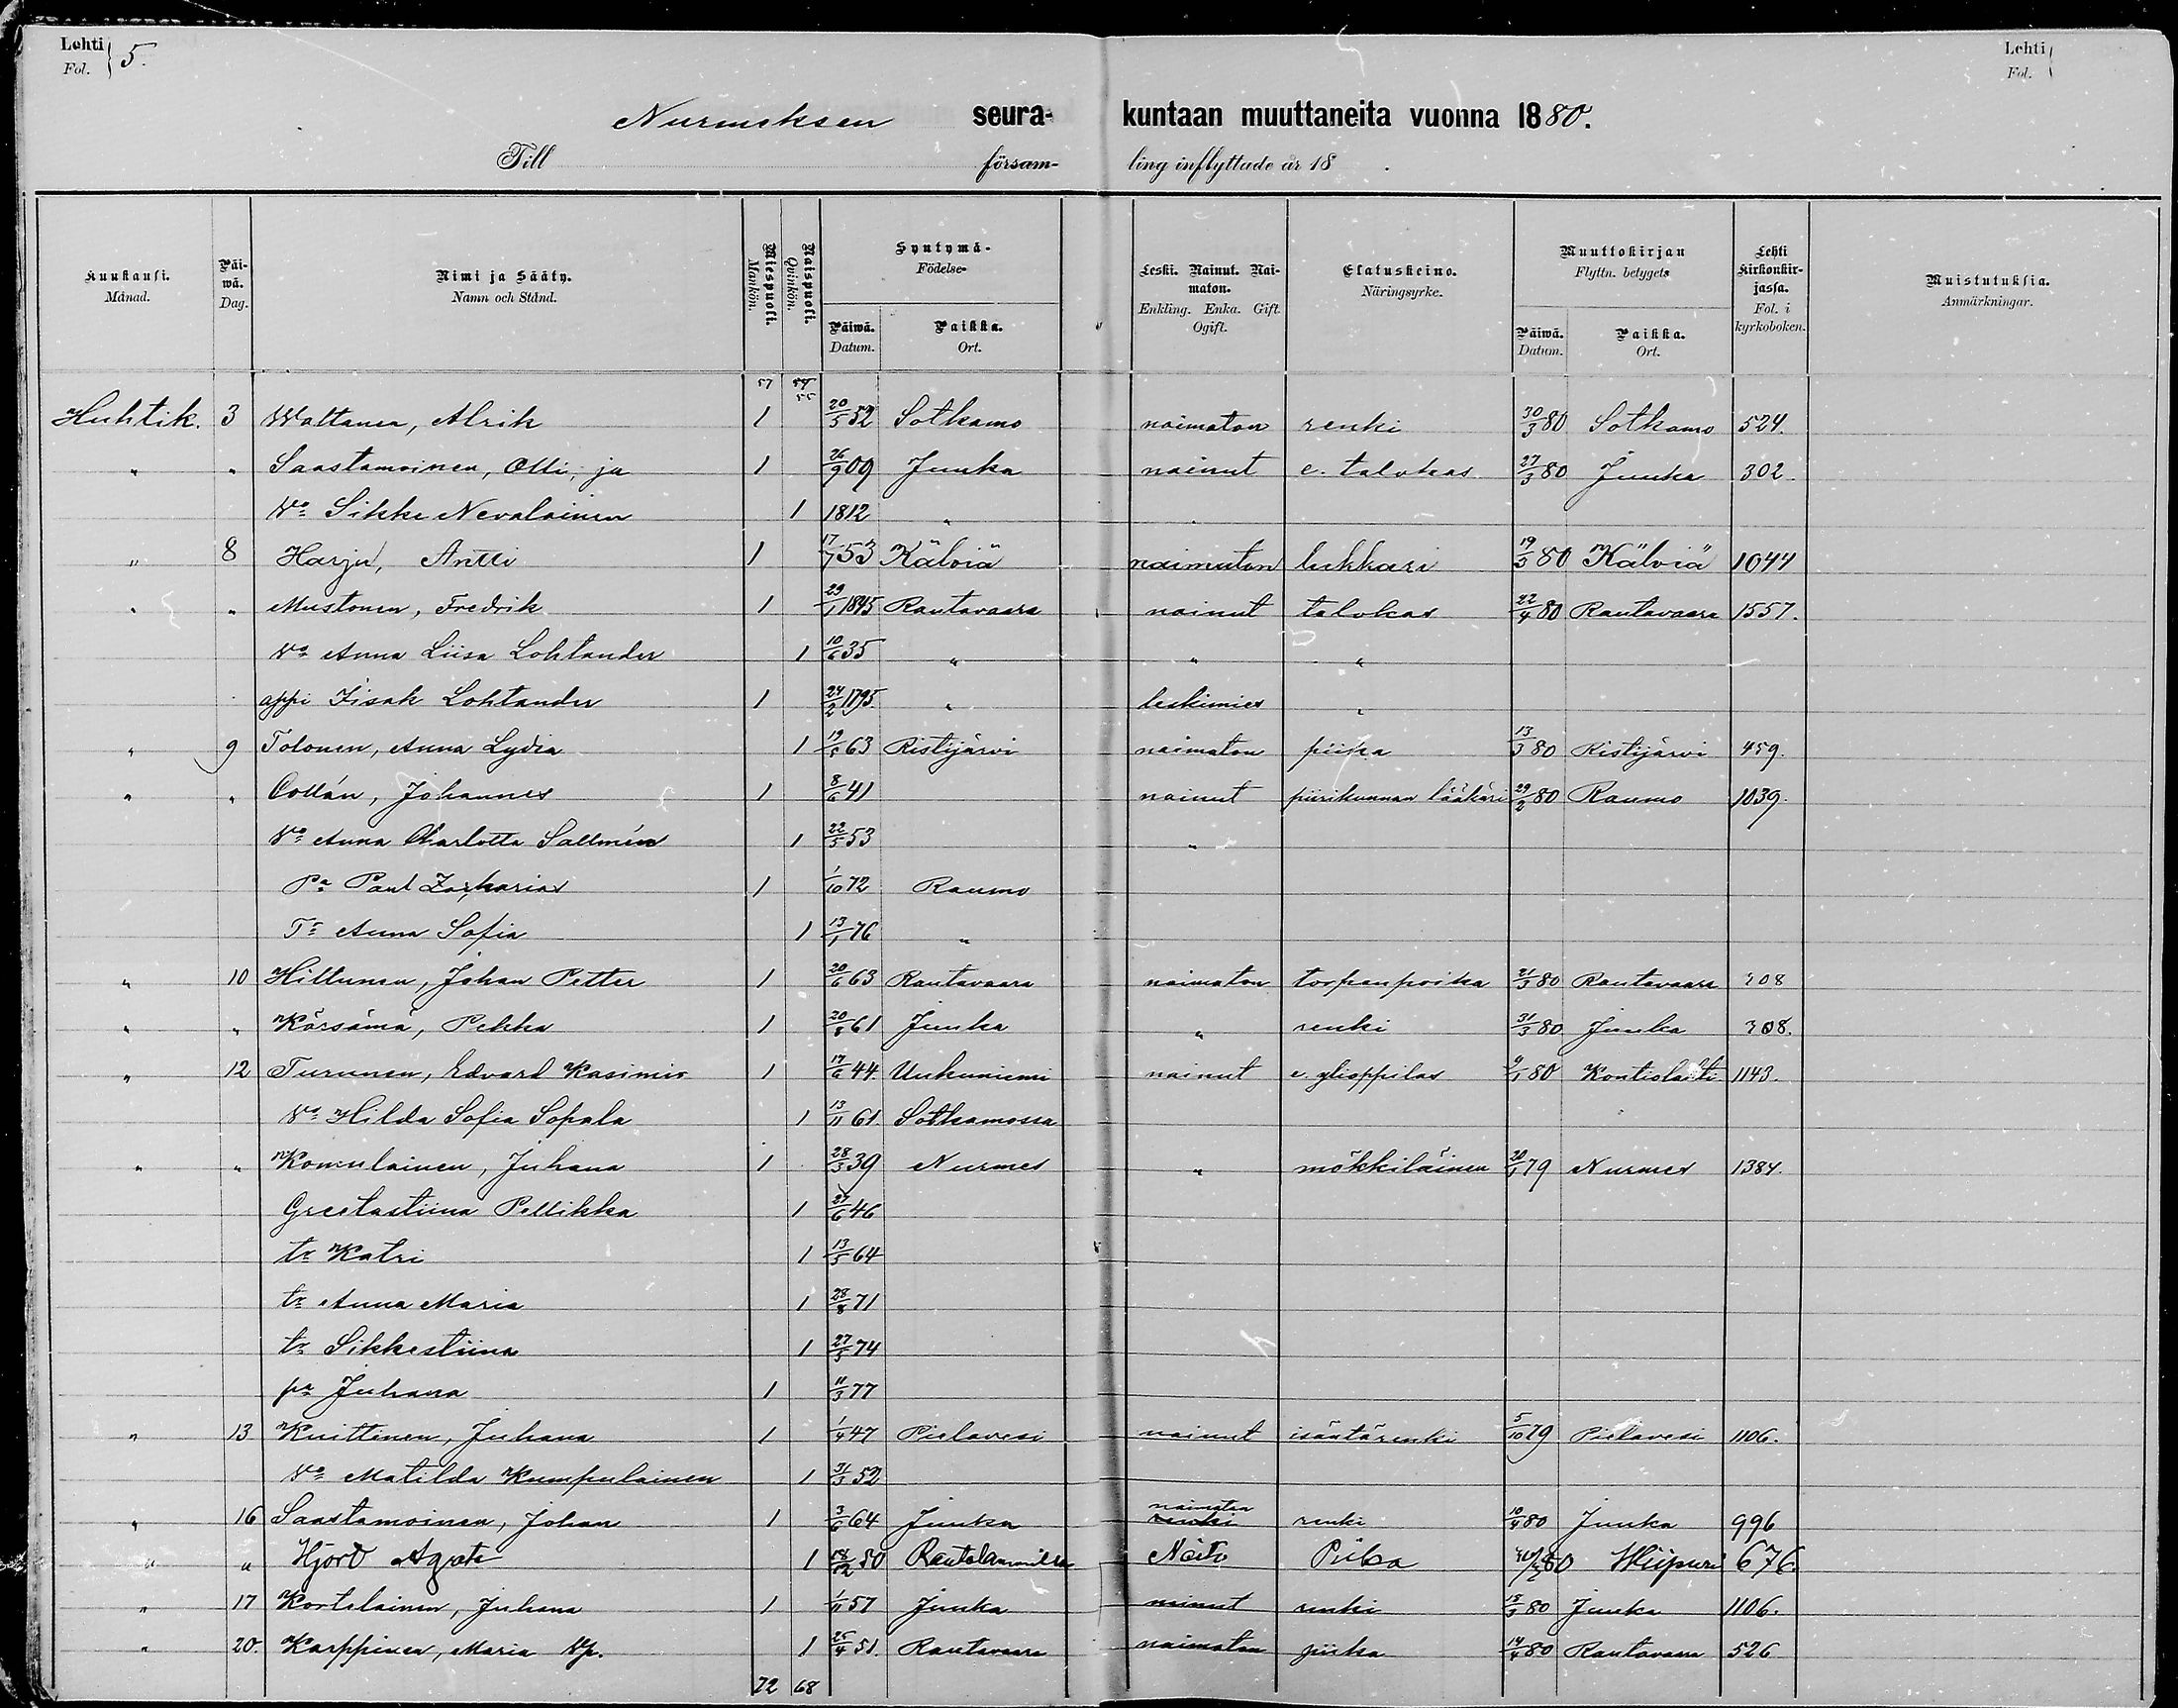 Lehti Fol. } 5.
Lehti Fol. {
Nurmeksen seura- kuntaan muuttaneita vuonna 1880.
Till församling inflyttade år 18 .
Kuukausi. Månad.
Päiwä. Dag.
Nimi ja Sääty. Namn och Stånd.
Miespuoli. Mankön.
Naispuoli. Qvinkön.
Syntymä- Födelse-
Päiwä. Datum.
Paikka. Ort.
Leski. Nainut. Naimaton. Enkling. Enka. Gift. Ogift.
Elatuskeino. Näringsyrke.
Muuttokirjan Flyttn. betygets
Päiwä. Datum.
Paikka. Ort.
Lehti Kirkonkirjassa. Fol. i kyrkoboken.
Muistutuksia. Anmärkningar.
57 55
Huhtik. 3 Wattanen, Alrik 1 20/5 52 Sotkamo naimaton renki 30/3 80 Sotkamo 524.
" " Saastamoinen, Olli, ja 1 26/9 09 Juuka nainut e. talokas 27/3 80 Juuka 302.
Vo Sikke Nevalainen 1 1812 "
" 8 Harju, Antti 1 17/7 53 Kälviä naimaton lukkari 19/3 80 Kälviä 1044
" " Mustonen, Fredrik 1 29/1 1845 Rautavaara nainut talokas 22/4 80 Rautavaara 1557.
Vo Anna Liisa Lohtander 1 10/6 35 " " "
appi Iisak Lohtander 1 24/2 1795. " leskimies "
" 9 Tolonen, Anna Lydia 1 19/5 63 Ristijärvi naimaton piika 13/3 80 Ristijärvi 459.
" " Collán, Johannes 1 8/6 41 nainut piirikunnan lääkäri 29/2 80 Raumo 1039.
Vo Anna Charlotta Sallmén 1 22/5 53 "
Pa Paul Zacharias 1 1/10 72 Raumo
Tr Anna Sofia 1 13/1 76 "
" 10 Hiltunen, Johan Petter 1 20/6 63 Rautavaara naimaton torpanpoika 21/3 80 Rautavaara 308
" " Kärsämä, Pekka 1 20/8 61 Juuka " renki 31/3 80 Juuka 308.
" 12 Turunen, Edvard Kasimir 1 17/6 44. Uukuniemi nainut e. ylioppilas 80 Kontiolahti 1143.
Vo Hilda Sofia Sopala 1 13/11 61. Sotkamossa
" " Komulainen, Juhana 1 28/3 39 Nurmes " mökkiläinen 20/1 79 Nurmes 1384.
Greetastiina Pellikka 1 27/6 46
tr Katri 1 13/5 64
tr Anna Maria 1 28/8 71
tr Sikkestiina 1 27/5 74
pa Juhana 1 11/3 77
" 13 Knittinen, Juhana 1 1/4 47 Pielavesi nainut isäntärenki 5/10 79 Pielavesi 1106.
Vo Matilda Kumpulainen 1 31/3 52
" 16 Saastamoinen, Johan 1 3/6 64 Juuka naimaton renki renki 10/4 80 Juuka 996
" " Hjord Agata 1 18/12 50 Rautalammilta Neito Piika 80 Wiipuri 676.
" 17 Kortelainen, Juhana 1 1/11 57 Juuka nainut renki 13/3 80 Juuka 1106.
" 20. Karppinen, Maria 1 25/4 51. Rautavaara naimaton piika 14/4 80 Rautavaara 526
72 68